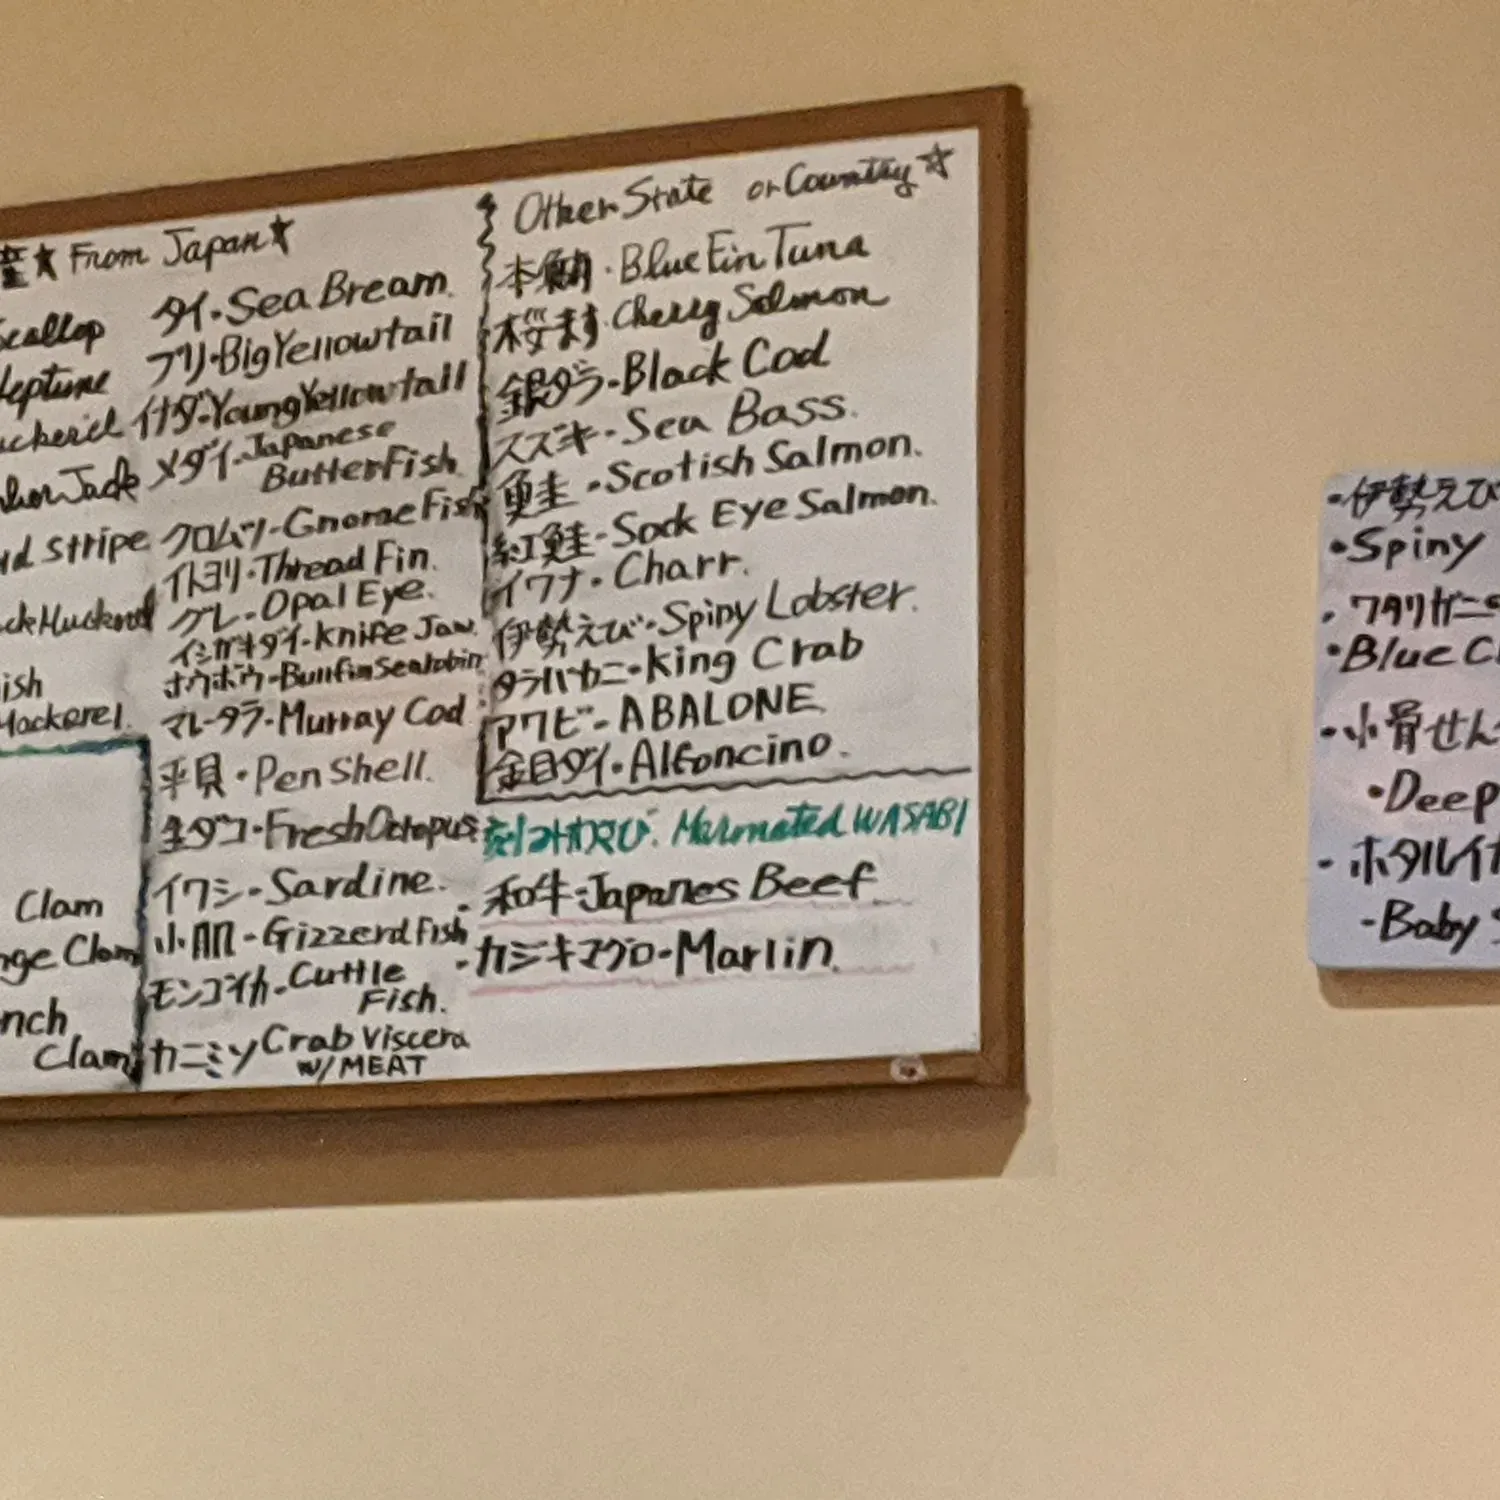 産★ From Japan★
Scallop
Neptune
stripe
ish
Mackerel.
Clam
Clam
nch
Clam
タイ・Sea Bream.
ブリ・Big Yellowtail
イナダ・Young Yellowtail
メダイ・Japanese
Butter Fish.
クロムツ-Gnome Fish
イトヨリ・Thread Fin.
グレ-Opal Eye.
イシガキダイ-Knife Jaw.
ホウボウ-
マレータラ-Murray Cod
平貝・Pen Shell.
生ダコ・Fresh Octopus
イワシ-Sardine.
小肌-Gizzerd Fish
モンゴイカ-Cuttle
Fish.
カニミソ Crab Viscera
w/ MEAT
Other State or Country☆
本鮪・Blue Fin Tuna
桜ます・Cherry Salmon
銀ダラ-Black Cod
スズキ-Sea Bass.
鮭・Scotish Salmon.
紅鮭-Sock Eye Salmon.
イワナ・Charr.
伊勢えび・Spiny Lobster.
タラバカニ-King Crab
アワビ-ABALONE
金目ダイ・Alfoncino.
刻みわさび. Marinated WASABI
・和牛-Japanes Beef.
・カジキマグロ-Marlin.
・伊勢えび
・Spiny
・ワタリガニ
・Blue C
・小骨せん
・Deep
- ホタルイカ
-Baby S